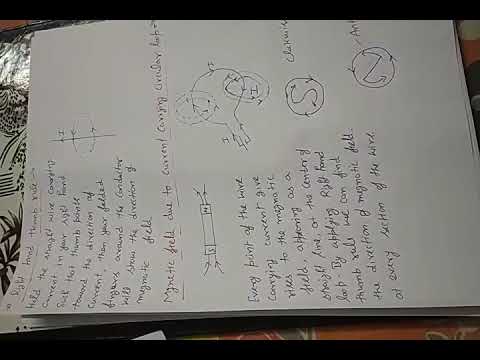 Right hand thumb rule →
Hold the straight wire carrying
current in your right hand
such that thumb points
toward the direction of
current, than your folded
fingers around the conductor
will show the direction of
magnetic field
I
Mgnetic field due to current carrying circular loop →
S N
I
I
Every point of the wire
carrying current give
rises to the magnetic
field appearing as a
straight line at the center of
loop By applying Right hand
thumb rule we can find
the direction of magnetic field
at every section of the wire.
S
N